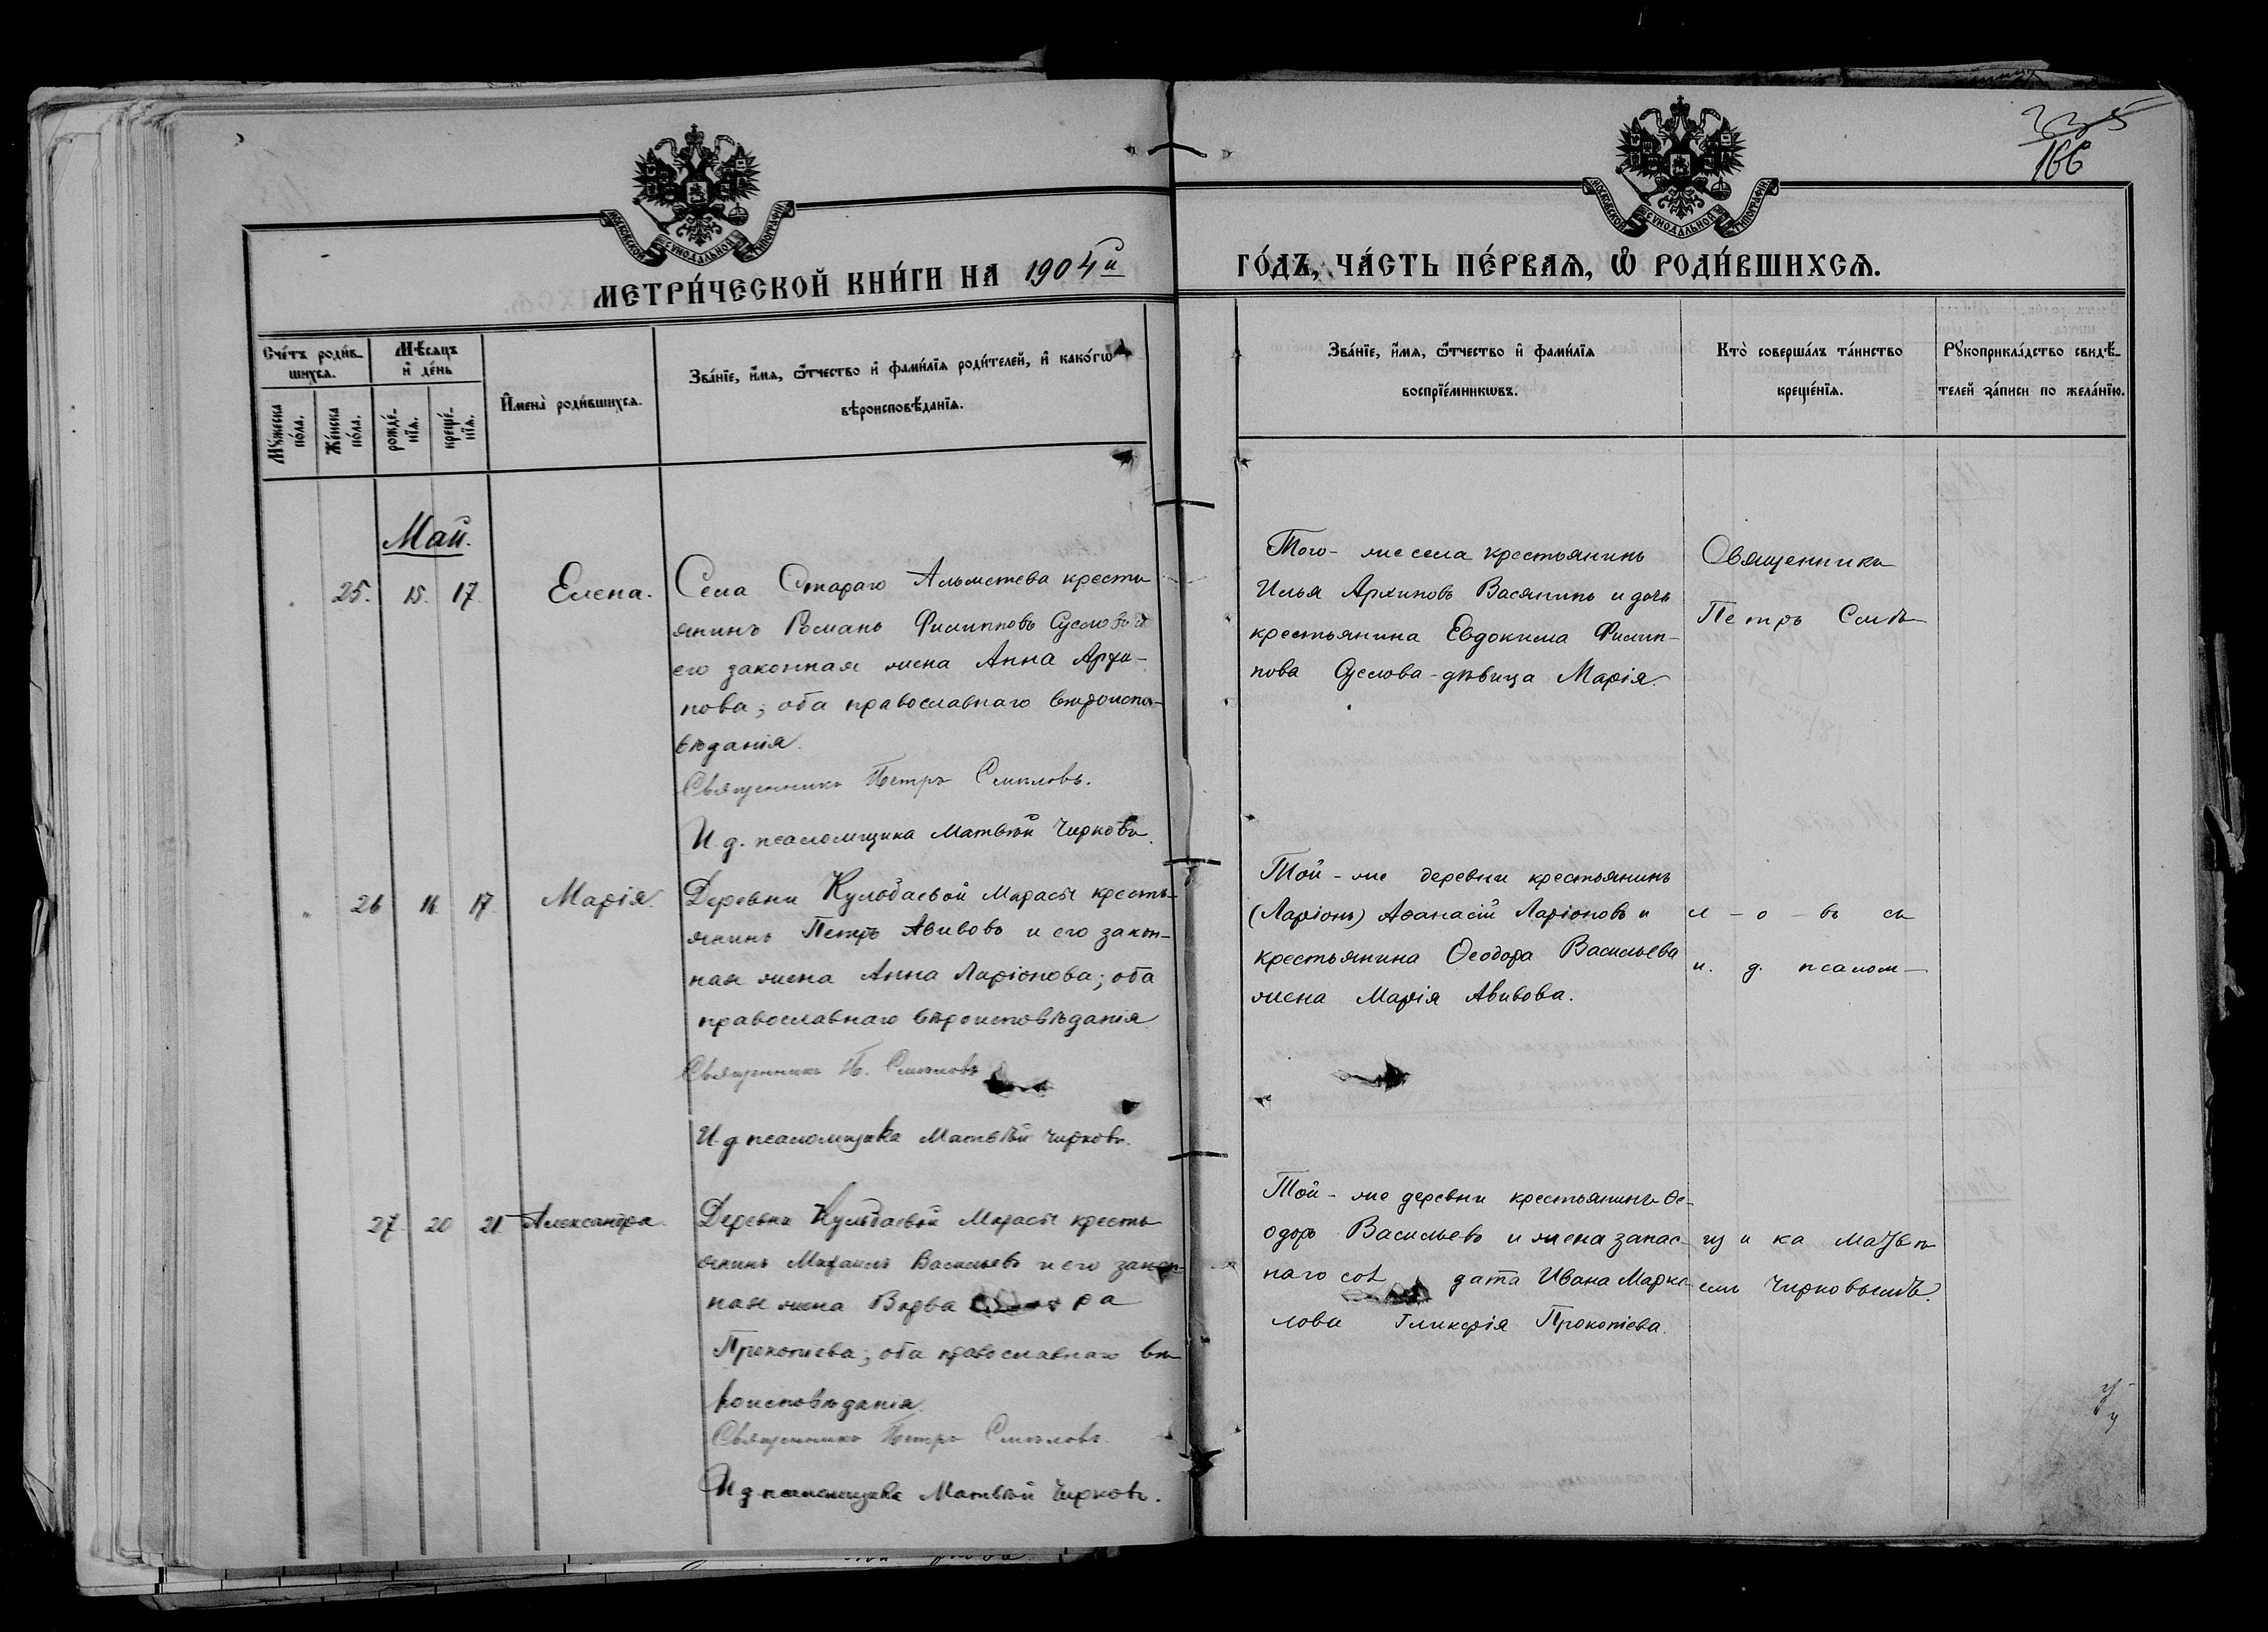 335
166
МОСКОВСКОЙ СѴНОДАЛЬНОЙ ТИПОГРАФІИ
МОСКОВСКОЙ СѴНОДАЛЬНОЙ ТИПОГРАФІИ
МЕТРИ́ЧЕСКОЙ КНИ́ГИ НА 1904й
ГО́ДЪ, ЧА́СТЬ ПЕ́РВАѦ, Ѡ҆ РОДИ́ВШИХСѦ.
Сче́тъ роди́в-
шихсѧ.
Мꙋ́жеска
по́ла.
Же́нска
по́ла.
Мѣ́сѧцъ
и҆ де́нь
рожде́-
нїѧ.
креще́-
нїѧ.
И҆мена̀ роди́вшихсѧ.
Зва́нїе, и҆́мѧ, ѻ҆́тчество и҆ фами́лїѧ роди́телей, и҆ како́гѡ
вѣроисповѣ́данїѧ.
Зва́нїе, и҆́мѧ, ѻ҆́тчество и҆ фами́лїѧ
воспрїе́мникѡвъ.
Кто̀ соверша́лъ та́инство
креще́нїѧ.
Рꙋкоприкла́дство свидѣ́-
телей за́писи по жела́нїю.
Май.
25. 15. 17. Елена.
Села Стараго Альметева кресть
янинъ Романъ Филипповъ Сусловъ и
его законная жена Анна Архи-
пова; оба православнаго вѣроиспо-
вѣданія.
Священникъ Петръ Смѣловъ.
И. д. псаломщика Матвѣй Чирковъ.
Того-же села крестьянинъ
Илья Архиповъ Васянинъ и дочь
крестьянина Евдокима Филип-
пова Суслова - дѣвица Марія.
Священника
Петръ Смѣ
26 16 17 Марія.
Деревни Кульбаевой Марасы кресть-
янинъ Петръ Авивовъ и его закон-
ная жена Анна Ларіонова; оба
православнаго вѣроисповѣданія
Священникъ П. Смѣловъ
И. д. псаломщика Матвѣй Чирковъ.
Той-же деревни крестьянинъ
(Ларіонъ) Аѳанасій Ларіоновъ и
крестьянина Ѳеодора Васильева
жена Марія Авивова.
л - о - въ съ
и. д. псалом-
27. 20 21 Александра.
Деревни Кульбаевой Марасы кресть
янинъ Михаилъ Васильевъ и его закон-
ная жена Варва ра
Прокопіева; оба православнаго вѣ
роисповѣданія.
Священникъ Петръ Смѣловъ.
И д псаломщика Матвѣй Чирковъ.
Той-же деревни крестьянинъ Ѳе-
одоръ Васильевъ и жена запас-
наго сол дата Ивана Марке
лова Гликерія Прокопіева.
щ и ка Матвѣ
емъ Чирковымъ.